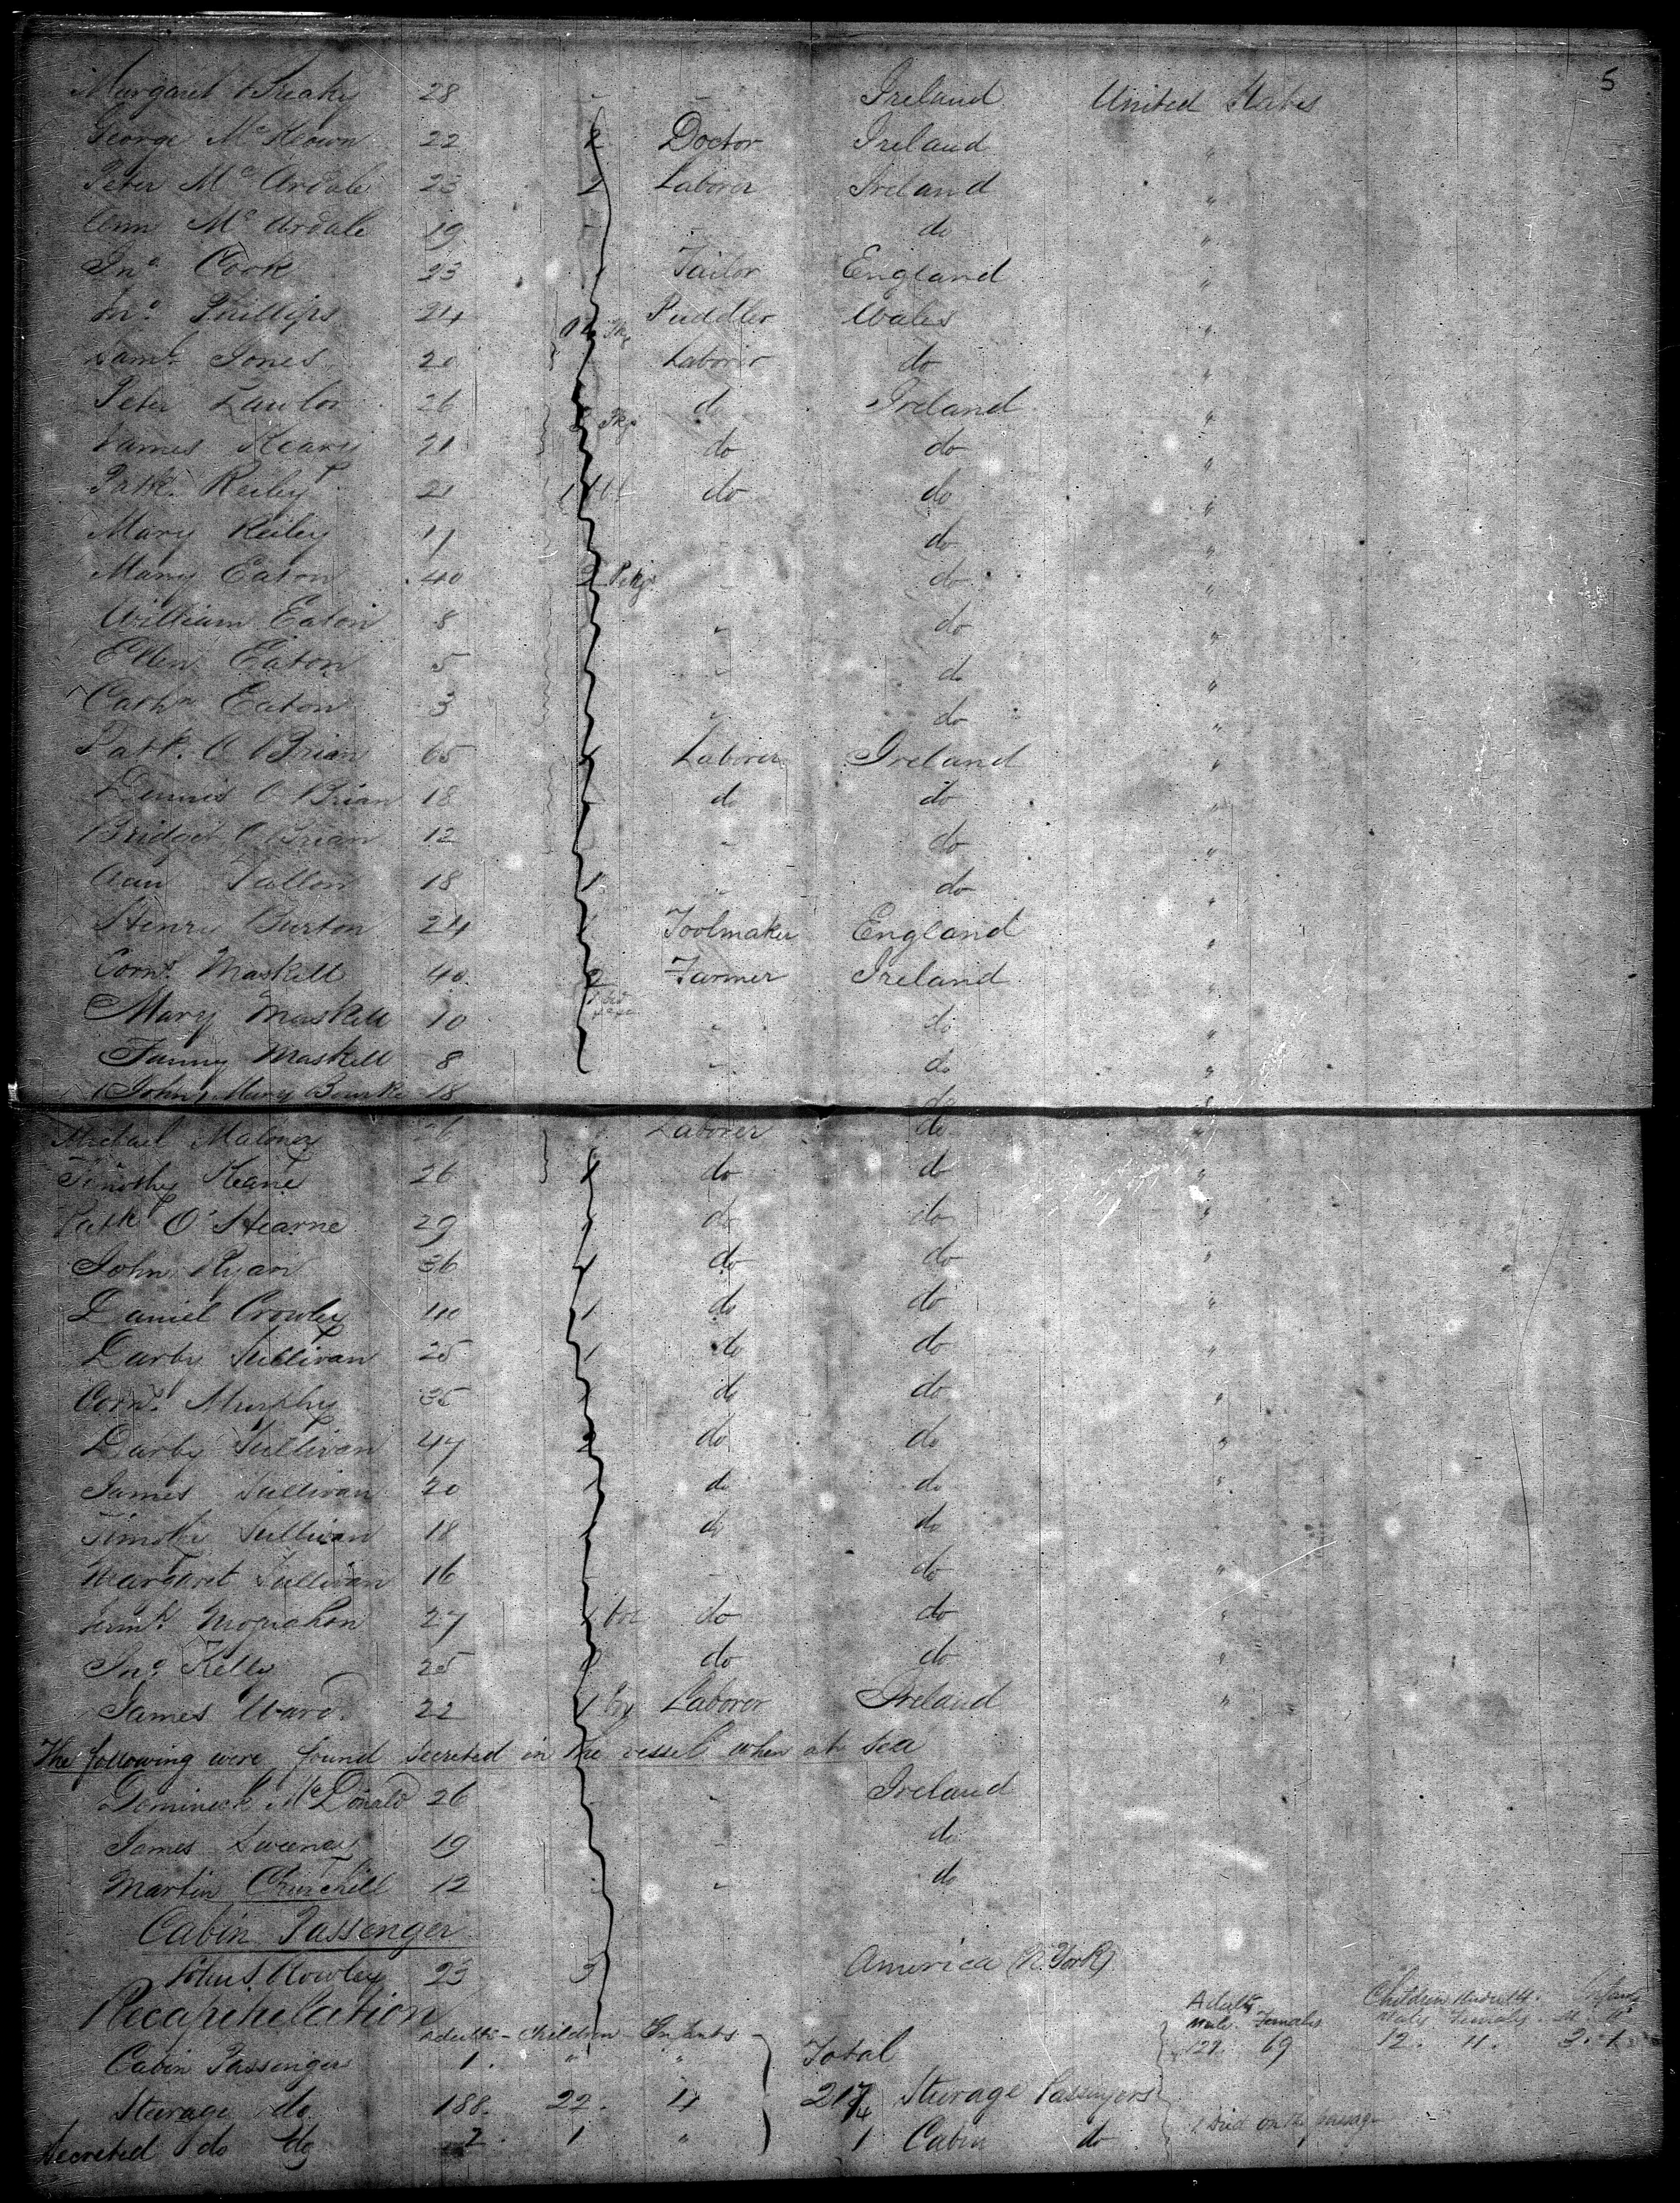 5
Margaret Breaky 28 - - Ireland United States
George Mc Keown 22 2 Doctor Ireland "
Peter Mc Ardale 23 2 Laborer Ireland "
Ann Mc Ardale 19 - do "
Jno Cook 23 1 Tailor England "
Jno Phillips 24 Puddler Wales "
Saml Jones 20 Laborer do "
Peter Lawlor 26 do Ireland "
James Keary 21 do do "
Patk. Reiley 21 1 do do "
Mary Reiley 17 do "
Mary Eaton 40 2 Pkgs - do "
William Eaton 8 " do "
Ellen Eaton 5 - do "
Cathn Eaton 3 " do "
Patk. O Brian 65 1 Laborer Ireland "
Dennis O Brian 18 - do do "
Bridget O Brian 12 - do "
Ann Fallon 18 1 - do "
Henry Burton 24 1 Toolmaker England "
Corns. Maskell 40 2 Farmer Ireland "
Mary Maskell 10 " do "
Fanny Maskell 8 - do "
John Mary Bourke 18 do "
Michael Maloney 26 Laborer do "
Timothy Keane 26 1 do do "
Patk O'Hearne 29 1 do do "
John Ryan 36 1 do do "
Daniel Crowley 40 1 do do "
Darby Sullivan 25 1 do do "
Corns. Murphy 35 1 do do "
Darby Sullivan 47 2 do do "
James Sullivan 20 1 do do "
Timothy Sullivan 18 1 do do "
Margaret Sullivan 16 - - do "
27 1 box do do "
Jno. Kelly 25 do do "
James Ward. 22 1 bx Laborer Ireland "
The following were found secreted in the vessel when at sea
Domineck Mc Donald 26 - " Ireland
James Sweeney 19 - do
Martin Churchill 12 - " do
Cabin Passenger
John S. Rowley 23 3 America (N. York)
Recapitulation
Adults - Children - Infants - Total
Cabin Passengers 1. " "
Steerage do. 188. 22. 4 Steerage Passengers
Secreted do do 2. 1 " 1 Cabin do
Adults Children Infants
Male. Females Males Females M F
69 12. 11. 3. 1
1 Died on the passage